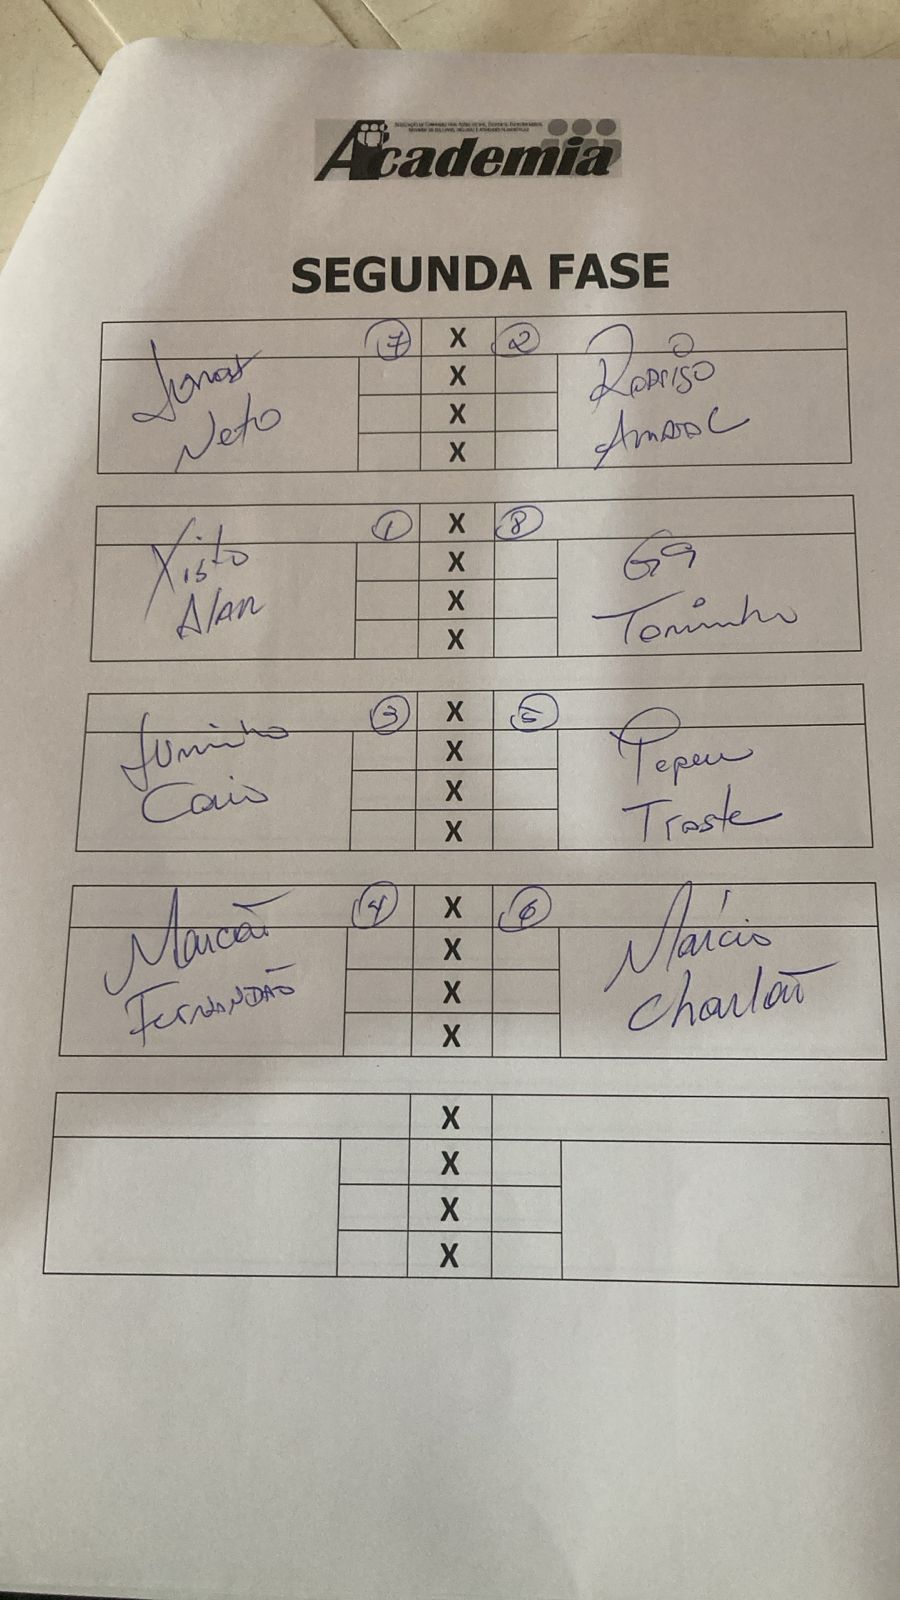 Academia
SEGUNDA FASE
7 X 2
Jonas X Rodrigo
Neto X Amaral
X
1 X 8
Xisto X Gg
Alan X Toninho
X
3 X 5
Juninho X Pepeu
Caio X Traste
X
4 X 6
Marcão X Márcio
Fernandão X Charlão
X
X
X
X
X